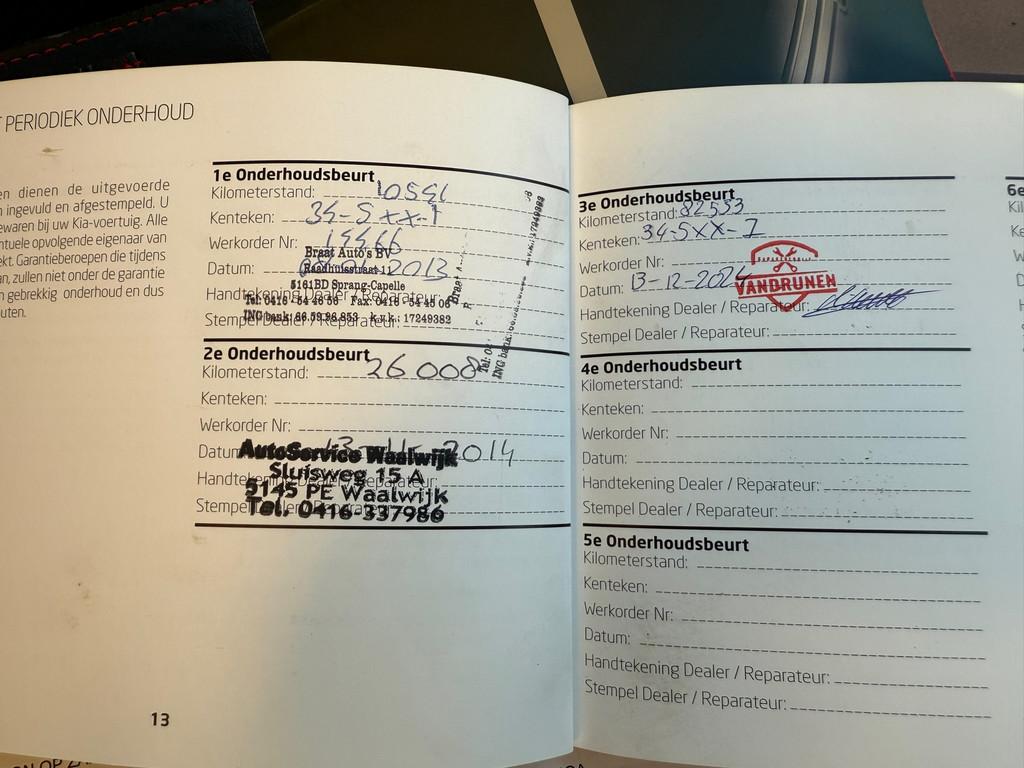 PERIODIEK ONDERHOUD
en dienen de uitgevoerde
ingevuld en afgestempeld. U
ewaren bij uw Kia-voertuig. Alle
ntuele opvolgende eigenaar van
ekt. Garantieberoepen die tijdens
an, zullen niet onder de garantie
gebrekkig onderhoud en dus
uten.
13
1e Onderhoudsbeurt
Kilometerstand: 10591
Kenteken: 34-SXX-1
Werkorder Nr:
Braat Auto's BV
Raadhuisstraat 11
Datum: 2013
5161BD Sprang-Capelle
Handtekening Dealer / Reparateur:
Tel: 0416 - 54 46 56 Fax: 0416 - 54 45 06
ING bank: 66.59.96.853 k.v.k.: 17249382
Stempel Dealer / Reparateur:
2e Onderhoudsbeurt
Kilometerstand: 26 008
Kenteken:
Werkorder Nr:
Datum: 13-11-2014
AutoService Waalwijk
Handtekening Dealer / Reparateur:
Sluisweg 15 A
5145 PE Waalwijk
Stempel Dealer / Reparateur:
Tel. 0416-337986
3e Onderhoudsbeurt
Kilometerstand: 82553
Kenteken: 34-SXX-1
Werkorder Nr:
Datum: 13-12-2024
VANDRUNEN
Handtekening Dealer / Reparateur:
Stempel Dealer / Reparateur:
4e Onderhoudsbeurt
Kilometerstand:
Kenteken:
Werkorder Nr:
Datum:
Handtekening Dealer / Reparateur:
Stempel Dealer / Reparateur:
5e Onderhoudsbeurt
Kilometerstand:
Kenteken:
Werkorder Nr:
Datum:
Handtekening Dealer / Reparateur:
Stempel Dealer / Reparateur:
6e